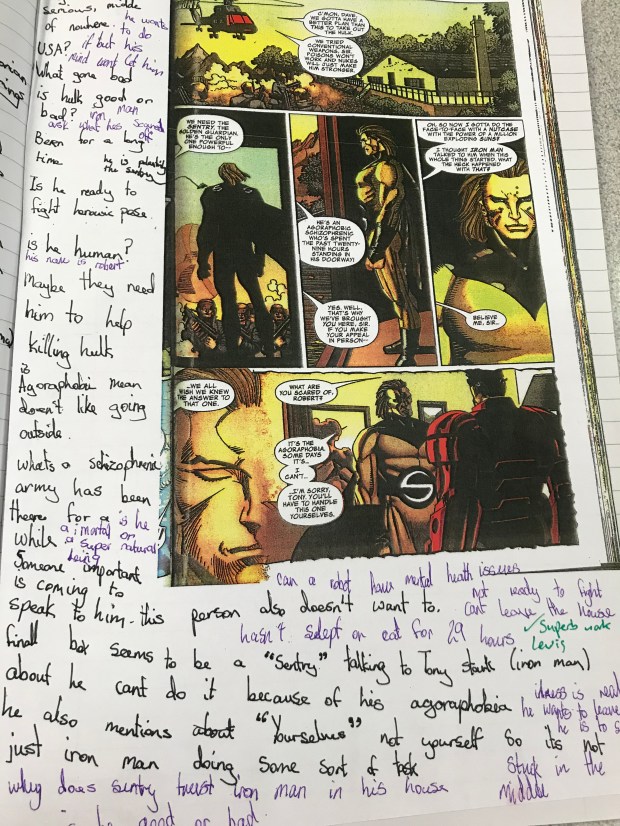 serious, middle
of nowhere. he wants
to do
USA? it but his
mind wont let him
What gone bad
is hulk good or
bad? iron man
ask what hes scared
off
Been for a long
time he is potentially
the sentry
Is he ready to
fight heroic pose.
is he human?
his name is robert
Maybe they need
him to help
killing hulk
is
Agoraphobi mean
doesn't like going
outside.
whats a schizophrenic
army has been
theere for a is he
while a imortal or
a super natural
being
Someone important
is coming to
speak to him. this person also doesn't want to.
final box seems to be a "Sentry" talking to Tony stark (iron man)
about he cant do it because of his agoraphobia
he also mentions about "Yourselves" not yourself so its not
just iron man doing some sort of task
why does sentry trust iron man in his house
is he good or bad
can a robot have mental heath issues
not ready to fight
cant leave the house
hasn't slept or eat for 29 hours
✓ Superb work
Lewis
he wants to leave
he is to s
Stuck in the
middle
C'MON, DAVE,
WE GOTTA HAVE A
BETTER PLAN THAN
THIS TO TAKE OUT
THE HULK.
WE TRIED
CONVENTIONAL
WEAPONS, SIR.
POISONS WON'T
WORK AND NUKES
WILL JUST MAKE
HIM STRONGER.
WE NEED THE
SENTRY, THE
GOLDEN GUARDIAN.
HE'S THE ONLY
ONE POWERFUL
ENOUGH TO--
HE'S AN
AGORAPHOBIC
SCHIZOPHRENIC
WHO'S SPENT
THE PAST TWENTY-
NINE HOURS
STANDING IN
HIS DOORWAY!
YES. WELL.
THAT'S WHY
WE'VE BROUGHT
YOU HERE, SIR.
IF YOU MAKE
YOUR APPEAL
IN PERSON--
OH, SO NOW I GOTTA DO THE
FACE-TO-FACE WITH A NUTCASE
WITH THE POWER OF A MILLION
EXPLODING SUNS?
I THOUGHT IRON MAN
TALKED TO HIM WHEN THIS
WHOLE THING STARTED. WHAT
THE HECK HAPPENED
WITH THAT?
BELIEVE
ME, SIR...
...WE ALL
WISH WE KNEW
THE ANSWER TO
THAT ONE.
WHAT ARE
YOU SCARED OF,
ROBERT?
IT'S THE
AGORAPHOBIA.
SOME DAYS
IT'S...
I
CAN'T...
...I'M SORRY,
TONY. YOU'LL
HAVE TO
HANDLE
THIS ONE
YOURSELVES.
S